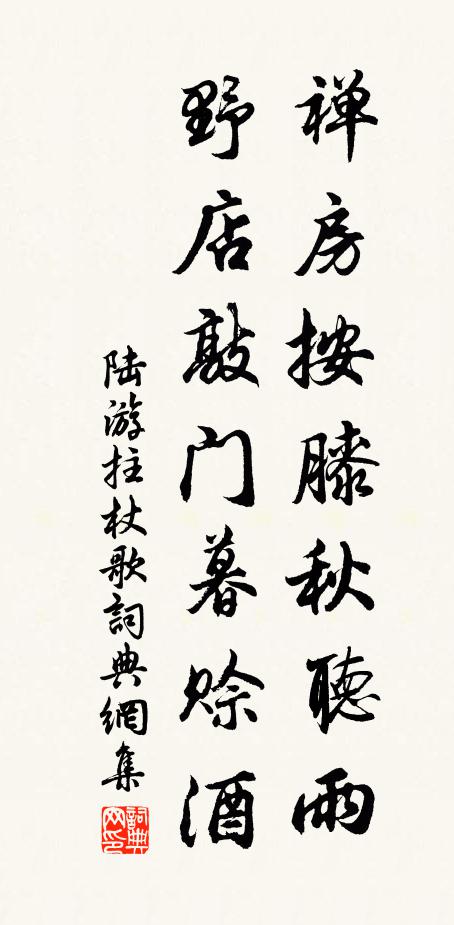 禅房按膝秋聽雨
野店敲门暮赊酒
陆游拄杖歌詞典網集
詞典网印